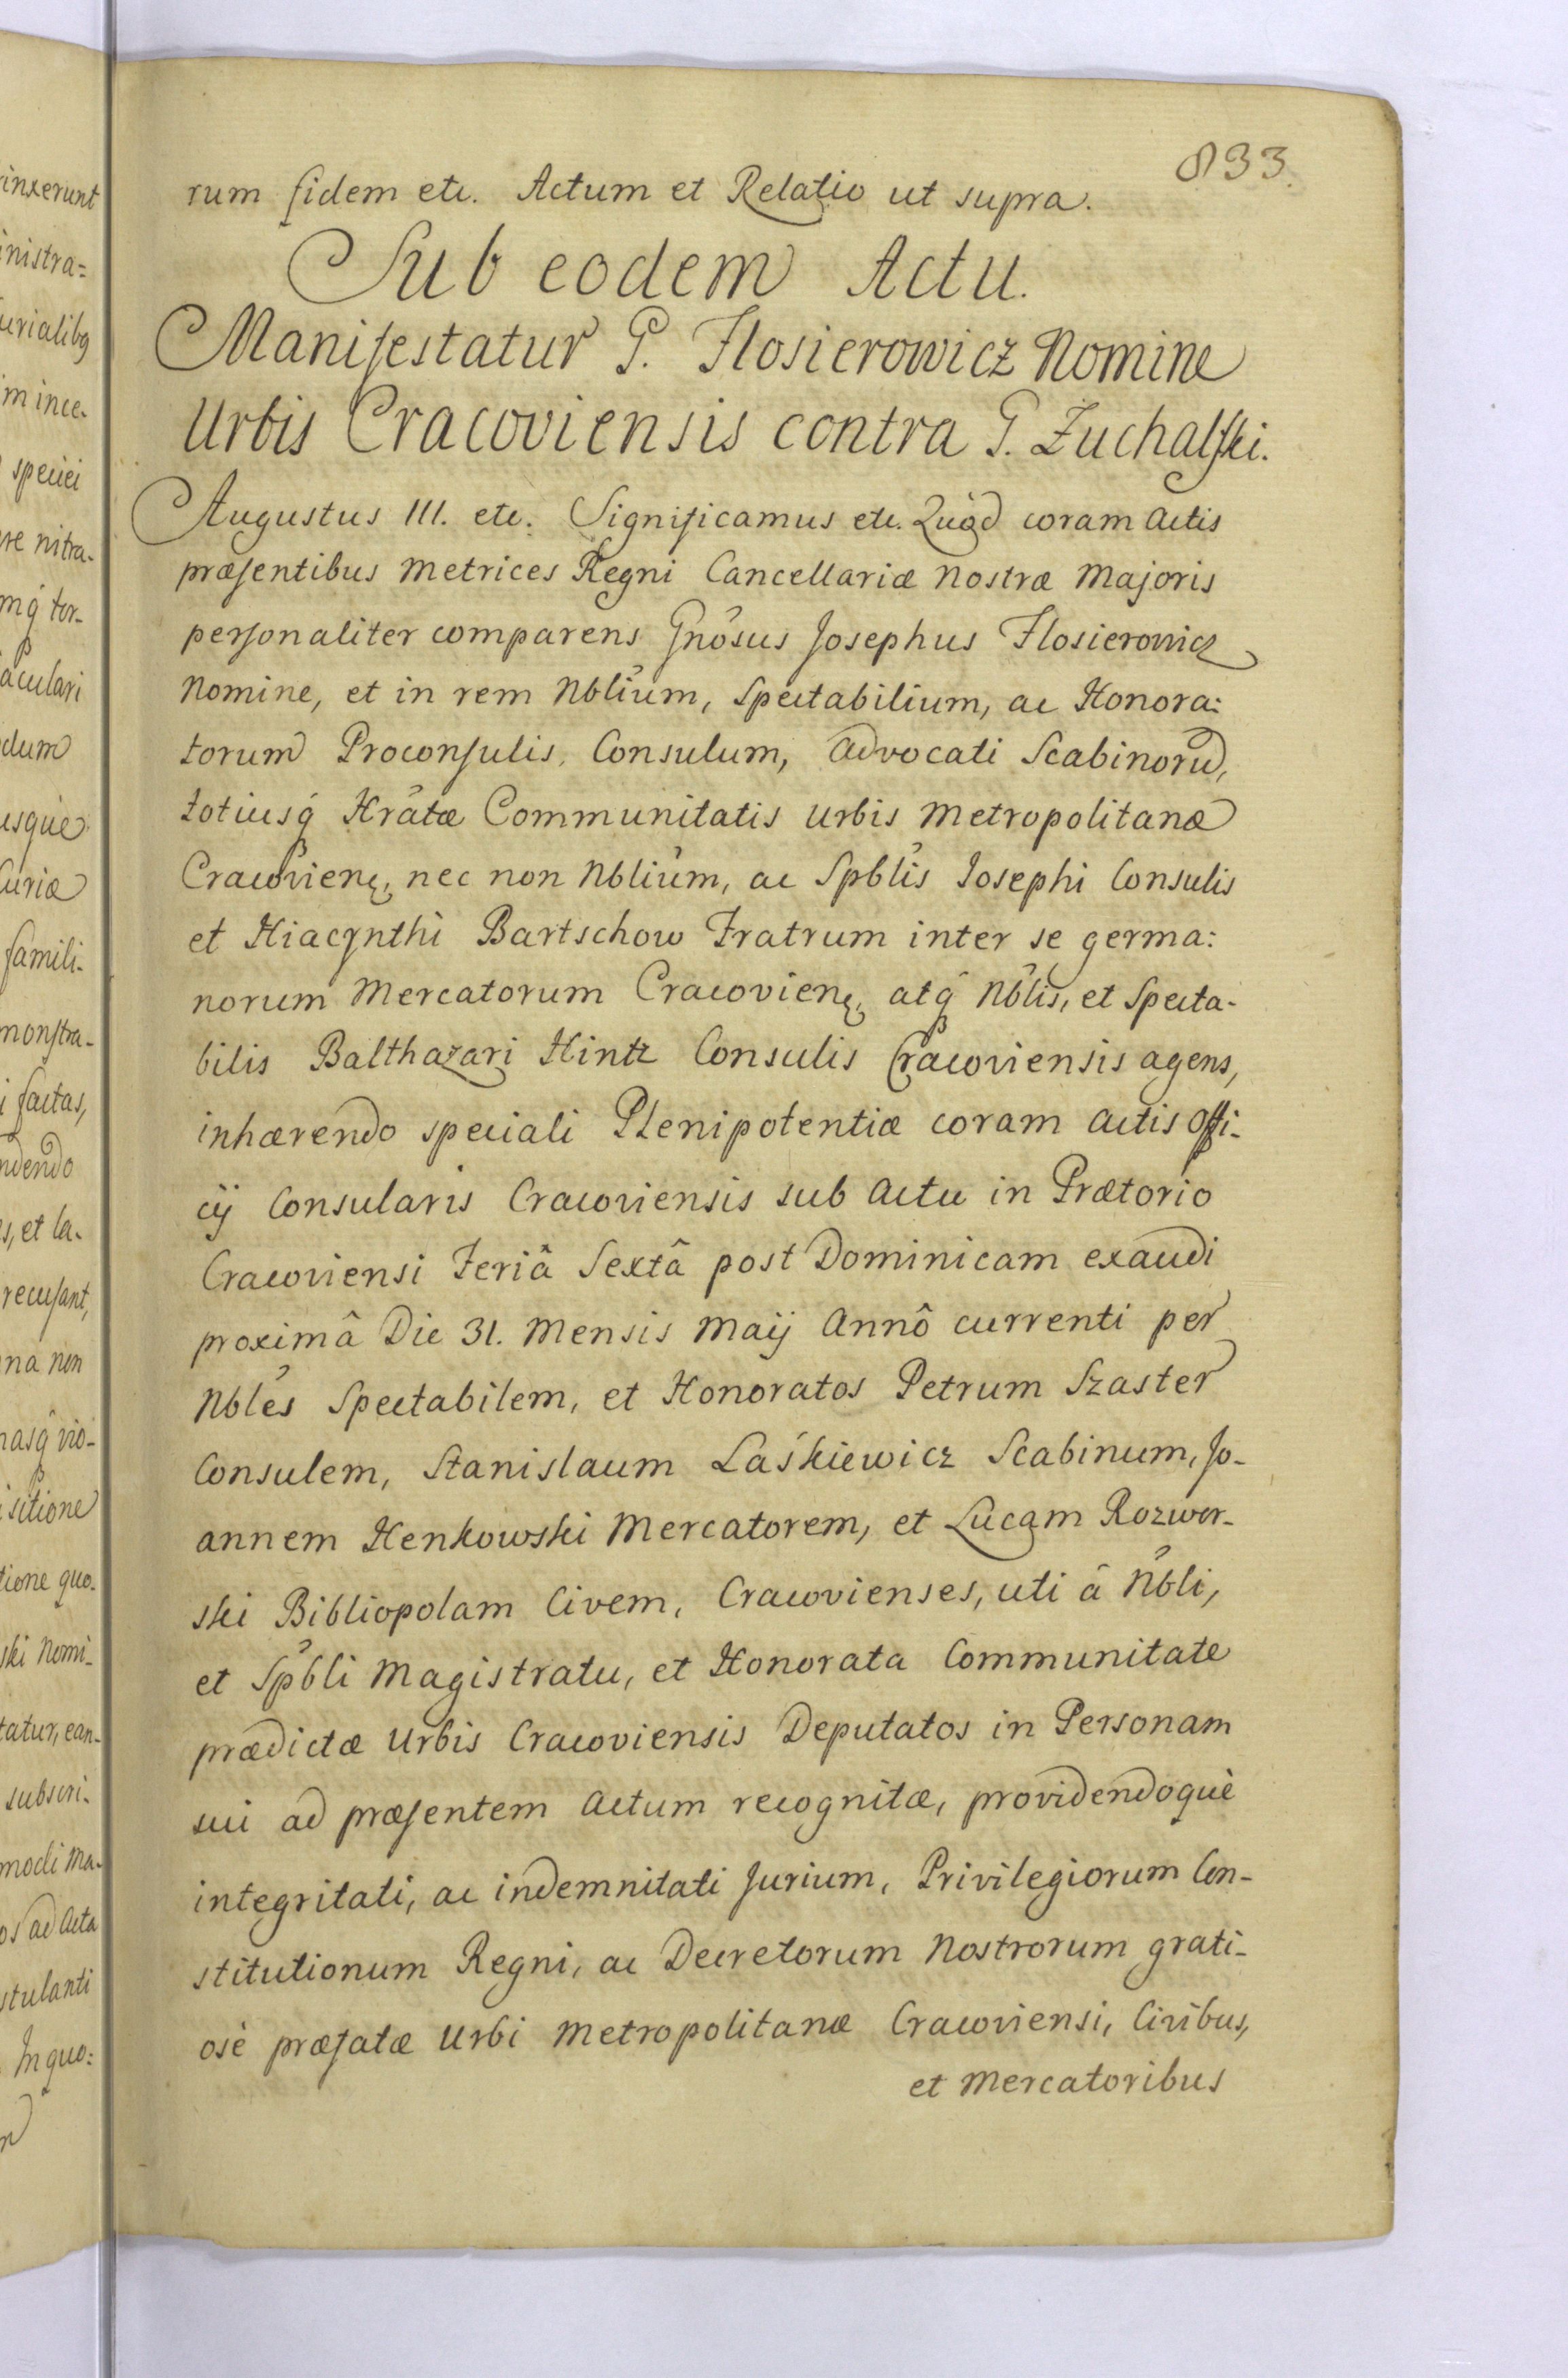 833.
rum fidem etc. Actum et Relatio ut supra.
Sub eodem Actu.
Manifestatur G. Flosierowicz Nomine
Urbis Cracoviensis contra G. Zuchalski.
Augustus III. etc. Significamus etc. Quòd coram Actis
præsentibus Metrices Regni Cancellariæ Nostræ Majoris
personaliter comparens Gnõsus Josephus Flosierowicz
Nomine, et in rem Nbliũm, Spectabilium, ac Honora:
torum Proconsulis, Consulum, Advocati Scabinorũ,
totiusq́ Hrãtæ Communitatis Urbis Metropolitanæ
Cracovien̨, nec non Nbliũm, ac Spblĩs Josephi Consulis
et Hiacynthi Bartschow Fratrum inter se germa:
norum Mercatorum Cracovien̨, atq́ Nblĩs, et Specta-
bilis Balthazari Hintz Consulis Cracoviensis agens,
inhærendo speciali Plenipotentiæ coram Actis Offi-
cÿ Consularis Cracoviensis sub Actu in Prætorio
Cracoviensi Feriâ Sextâ post Dominicam exaudi
proximâ Die 31. Mensis Maÿ Annô currenti per
Nblẽs Spectabilem, et Honoratos Petrum Szaster
Consulem, Stanislaum Laśkiewicz Scabinum, Jo-
annem Henkowski Mercatorem, et Lucam Rozwor-
ski Bibliopolam Civem, Cracovienses, uti â Nbli,
et Spbli Magistratu, et Honorata Communitate
prædictæ Urbis Cracoviensis Deputatos in Personam
sui ad præsentem Actum recognitæ, providendoquè
integritati, ac indemnitati Jurium, Privilegiorum Con-
stitutionum Regni, ac Decretorum Nostrorum grati-
osè præfatæ Urbi Metropolitanæ Cracoviensi, Civibus,
et Mercatoribus